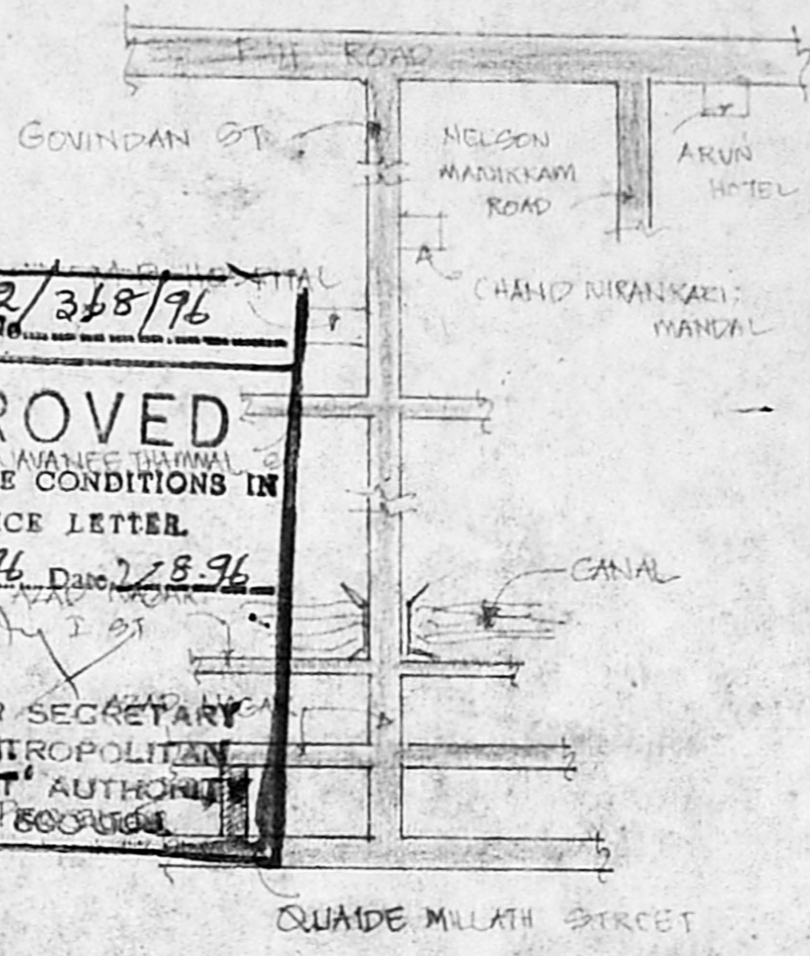 ROAD
GOVINDAN ST
NELSON
MANIKKAM
ROAD
ARUN
HOTEL
CHAND NIRANKARI
MANDAL
2/368/96
ROVED
E CONDITIONS IN
CE LETTER.
96 Date 2/8.96
AZAD NAGAR
I ST
CANAL
AZAD NAGAR
SECRETARY
TROPOLITAN
T AUTHORITY
QUAIDE MILLATH STREET